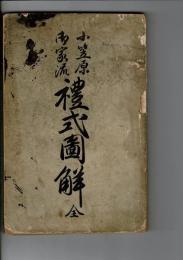 小笠原
御家流
禮式圖解 全